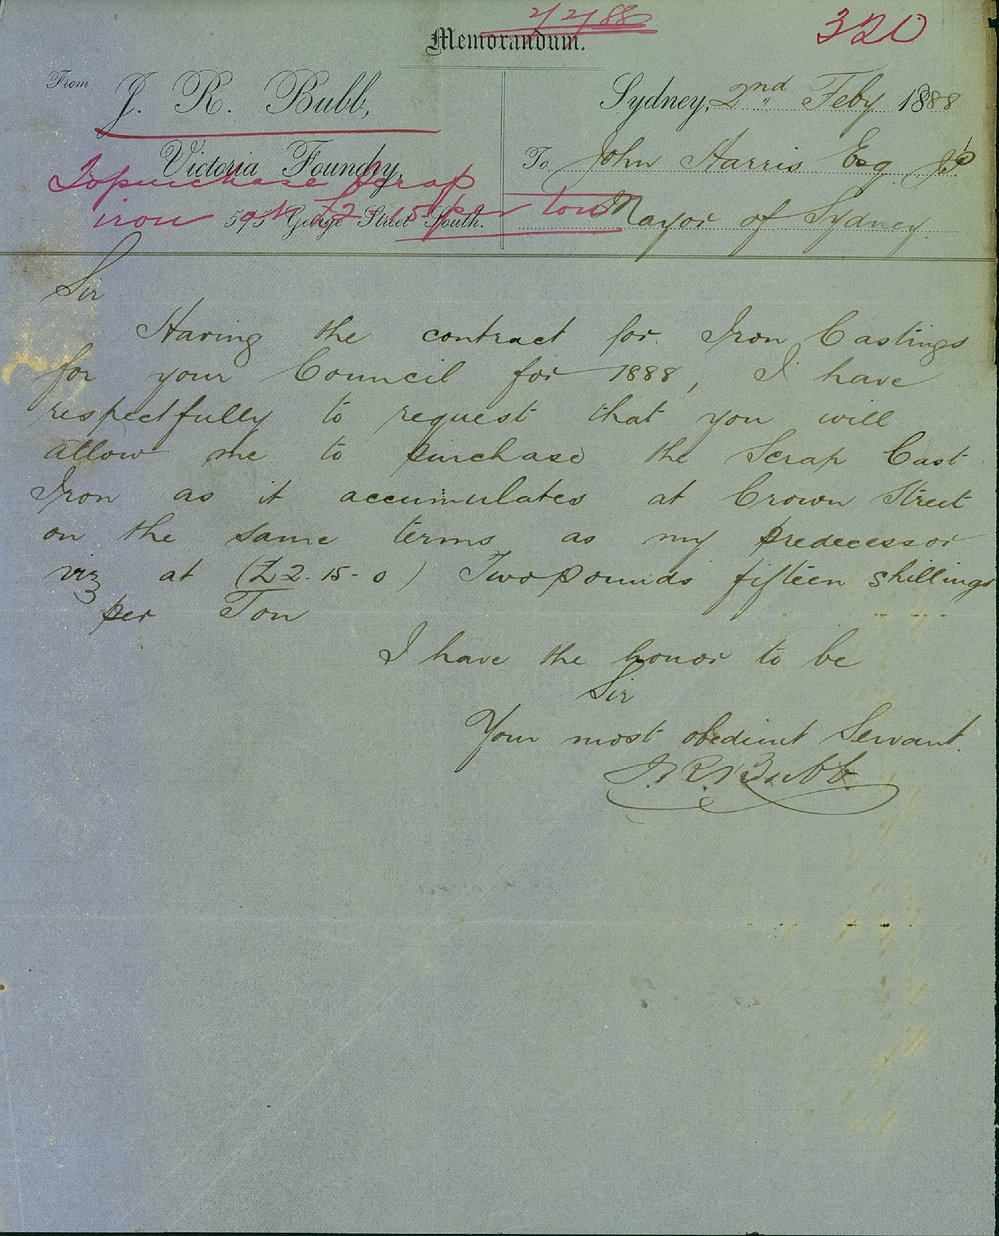 2/2/88
320
Memorandum.
From
J. R. Bubb,
Victoria Foundry,
595 George Street South.
To purchase scrap
iron at £2.15 per ton
Sydney, 2nd Feby 1888
To John Harris Esq J.P.
Mayor of Sydney
Sir
Having the contract for Iron Castings
for your Council for 1888, I have
respectfully to request that you will
allow me to purchase the Scrap Cast
Iron as it accumulates at Crown Street
on the same terms as my predecessor
viz at (£2-15-0) Two pounds fifteen shillings
per Ton
I have the honor to be
Sir
Your most obedient Servant.
J. R. Bubb